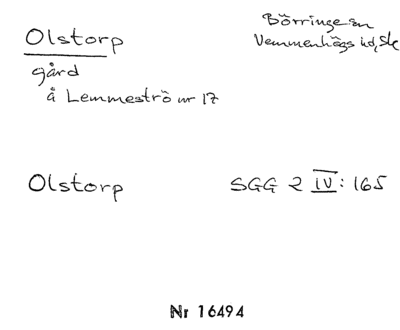 Olstorp
Börringe sn
Vemmenhögs hd, Sk
gård
å Lemmeströ nr 17
Olstorp
SGG 2 IV: 165
Nr 16494